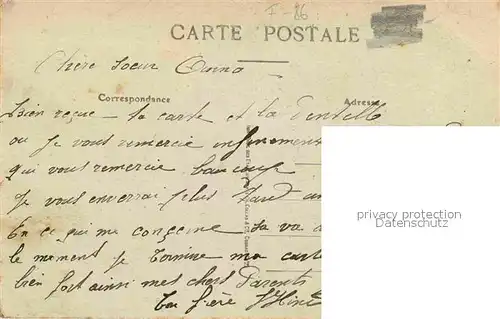 F-86
CARTE POSTALE
Chère Soeur Anna
Correspondance
Adresse
Bien reçue la carte et la Dentelle
ou Je vous remercie infiniment
qui vous remercie beaucoup
Je vous enverrai plus tard un
En ce qui me concerne sa va
le moment Je Termine ma cart
bien fort ainsi mes chers Parents
Ton frère
privacy protection
Datenschutz